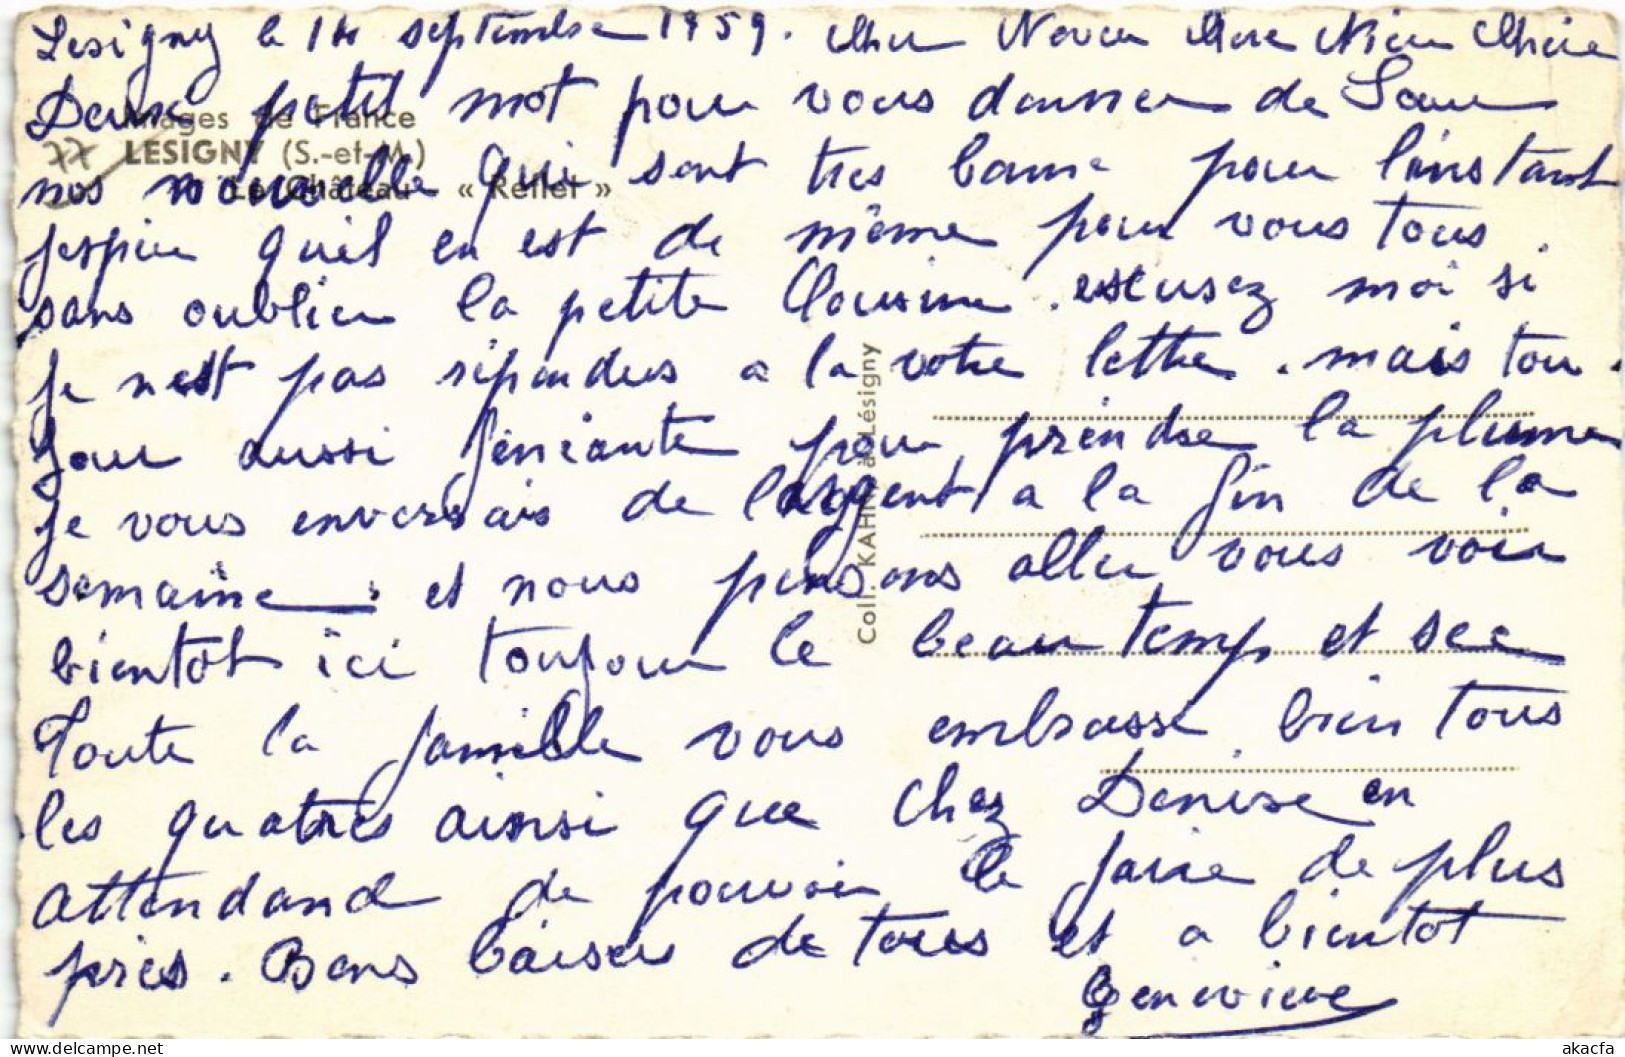 Lesigny le 14 septembre 1959. Cher Neveu Chere Niece Chere
Deux petit mot pour vous donner de Soeur
Images de France
LESIGNY (S.-et-M.)
77
nos nouvelle qui sont tres bonne pour l'instant
Le Château - « Reflet »
jespere quil en est de même pour vous tous.
sans oublier la petite Cousine. escusez moi si
je nest pas répondus a la votre lettre. mais tou.
jour aussi féniante pour prendre la plume
Coll. KAHN à Lésigny
je vous enverrais de l'argent a la fin de la
semaine. et nous pensons aller vous voir
bientôt ici toujour le beau temp et sec
Toute la famille vous embrasse bien tous
les quatres ainsi que chez Denise en
attendand de pouvoir le faire de plus
près. Bons baisers de tous et a bientot
Genevieve
akacfa